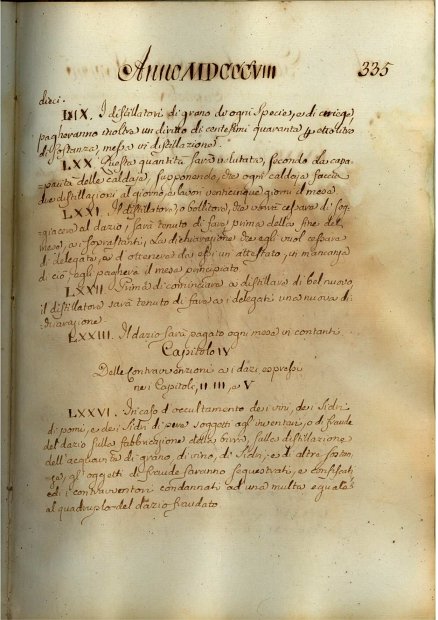 Anno MDCCCVIII 335
dieci.
LXIX. I distillatori di grano di ogni Specie, e di
pagheranno inoltre un diritto di centesimi quaranta p ottolitro
di sostanza, messa in distillazione.
LXX. Questa quantità sarà valutata, secondo la capa=
=pacità delle caldaje, supponendo, che ogni caldaja faccia
due distillazioni al giorno, e lavori venticinque giorni il mese
LXXI. Il distillatore, o bollitore, che vorrà cessare di sog=
=giacere al dazio, sarà tenuto di fare prima della fine del
mese, a i soprastanti, la dichiarazione che egli vuol cessare
il delegato, e d ottenere da essi un attestato, in mancanza
di ciò egli pagherà il mese principiato
LXXII. Prima di cominciare a distillare di bel nuovo
il distillatore sarà tenuto di fare a i delegati una nuova di=
=chiarazione
LXXIII. Il dazio sarà pagato ogni mese in contanti
Capitolo IV
Delle Contravvenzioni a i dazi espressi
ne i Capitoli, II. III, e V
LXXVI. In caso d occultamento de i vini, de i Sidri
di pomi, e de i Sidri di pere soggetti agl inventari, o di fraude
del dazio sulla fabbricazione della birra, sulla distillazione
dell'acquavita di grano, di vino, di Sidri, e di altre sostan=
=ze, gl'oggetti di fraude saranno sequestrati, e confiscati,
ed i contravventori condannati ad una multa eguale
al quadruplo del dazio fraudato